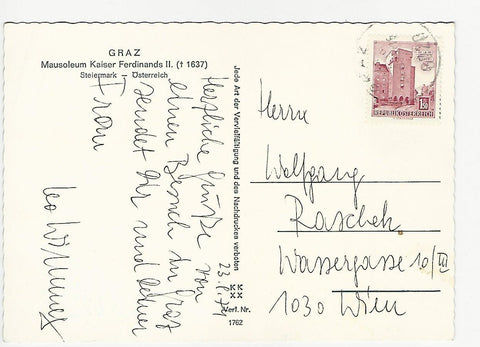 GRAZ
Mausoleum Kaiser Ferdinands II. († 1637)
Steiermark – Österreich
Herzliche Grüße von
einem Besuch in Graz
sendet Dir und Deiner
Frau
Leo
Jede Art der Vervielfältigung und des Nachdruckes verboten
KK
XX
Verl. Nr.
1762
REPUBLIK ÖSTERREICH
Herrn
Wolfgang
Raschek
Wassergasse 10/III
1030 Wien